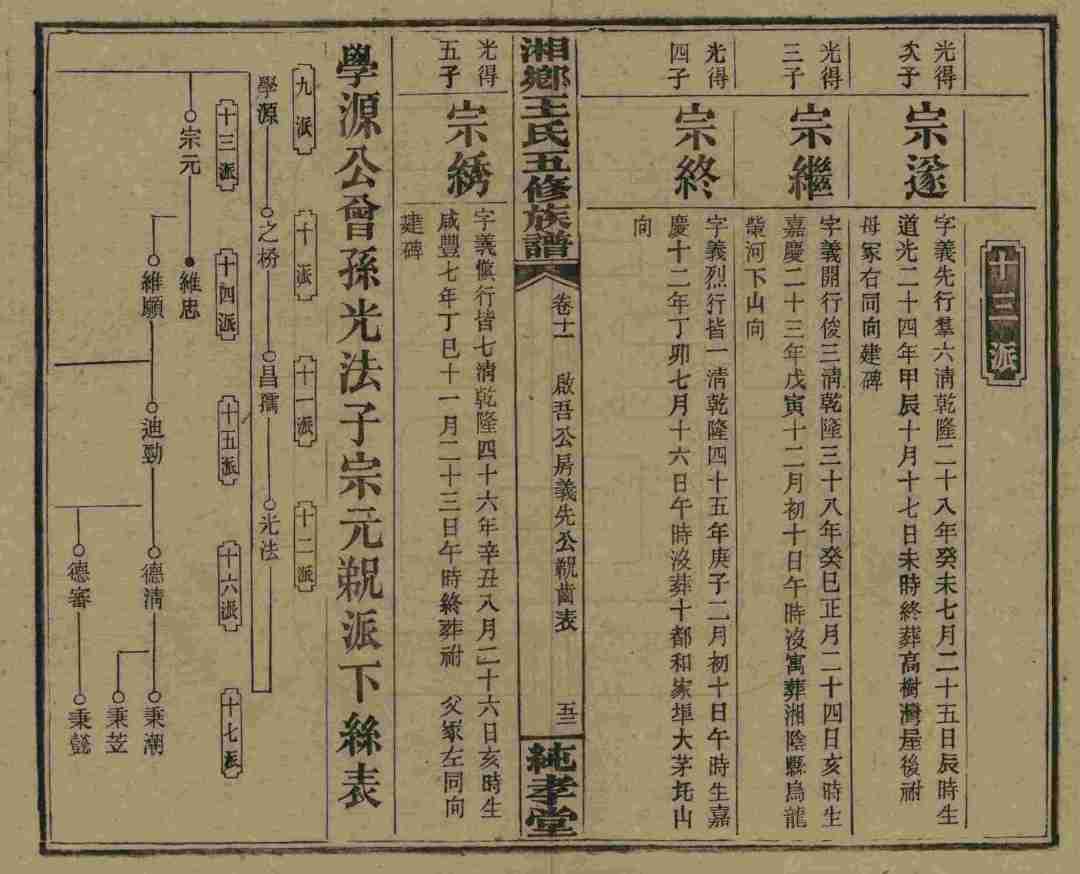 十三派
光得
次子
宗遂
字義先行羣六淸乾隆二十八年癸未七月二十五日辰時生
道光二十四年甲辰十月十七日未時終葬高樹灣屋後祔
母冢右同向建碑
光得
三子
宗繼
字義開行俊三淸乾隆三十八年癸巳正月二十四日亥時生
嘉慶二十三年戊寅十二月初十日午時沒寓葬湘陰縣烏龍
嘴河下山向
光得
四子
宗終
字義烈行皆一淸乾隆四十五年庚子二月初十日午時生嘉
慶十二年丁卯七月十六日午時沒葬十都和家埠大茅圫山
向
湘鄉王氏五修族譜
卷十一
啟吾公房義先公派齒表
五三
純孝堂
光得
五子
宗綉
字義愼行皆七淸乾隆四十六年辛丑八月二十六日亥時生
咸豐七年丁巳十一月二十三日午時終葬祔 父冢左同向
建碑
學源公曾孫光法子宗元派下絲表
九派
十派
十一派
十二派
學源
之枬
昌孺
光法
十三派
十四派
十五派
十六派
十七派
宗元
維忠
維願
迪勁
德淸
秉潮
秉笠
德審
秉懿